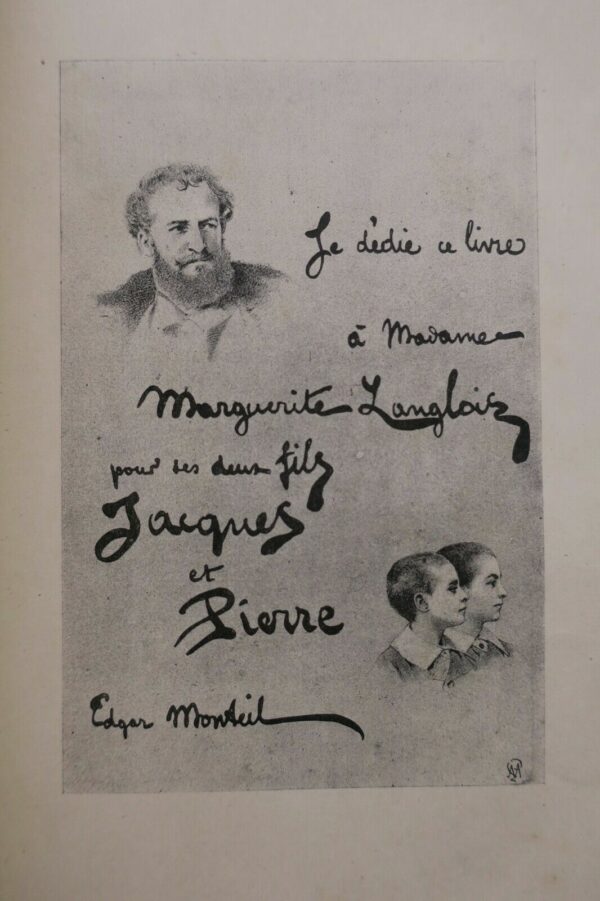 Je dédie ce livre
à Madame
Marguerite Langlois
pour ses deux fils
Jacques
et
Pierre
Edgar Monteil